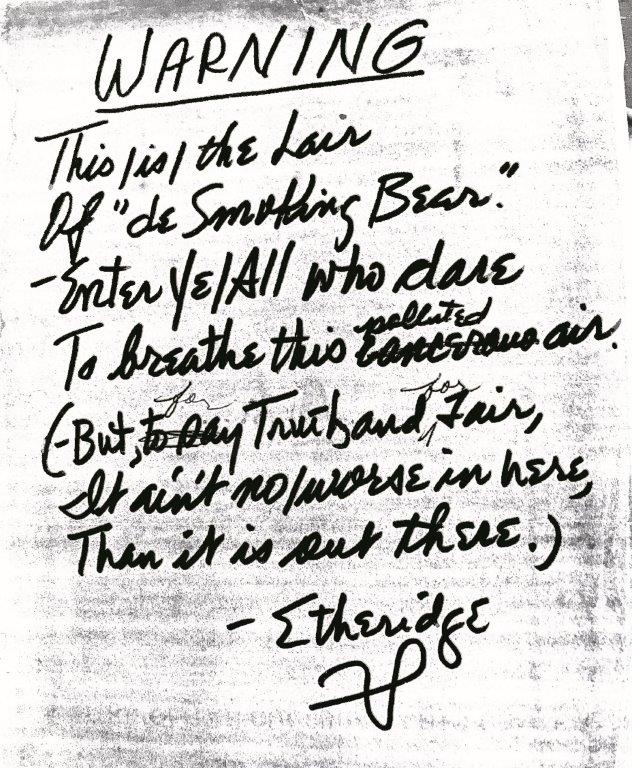 WARNING
This/is/the Lair
Of "de Smoking Bear."
-Enter Ye/All who dare
polluted
To breathe this cancerous air.
for for
(-But, to say Truth and, Fair,
It ain't no/worse in here,
Than it is out there.)
- Etheridge